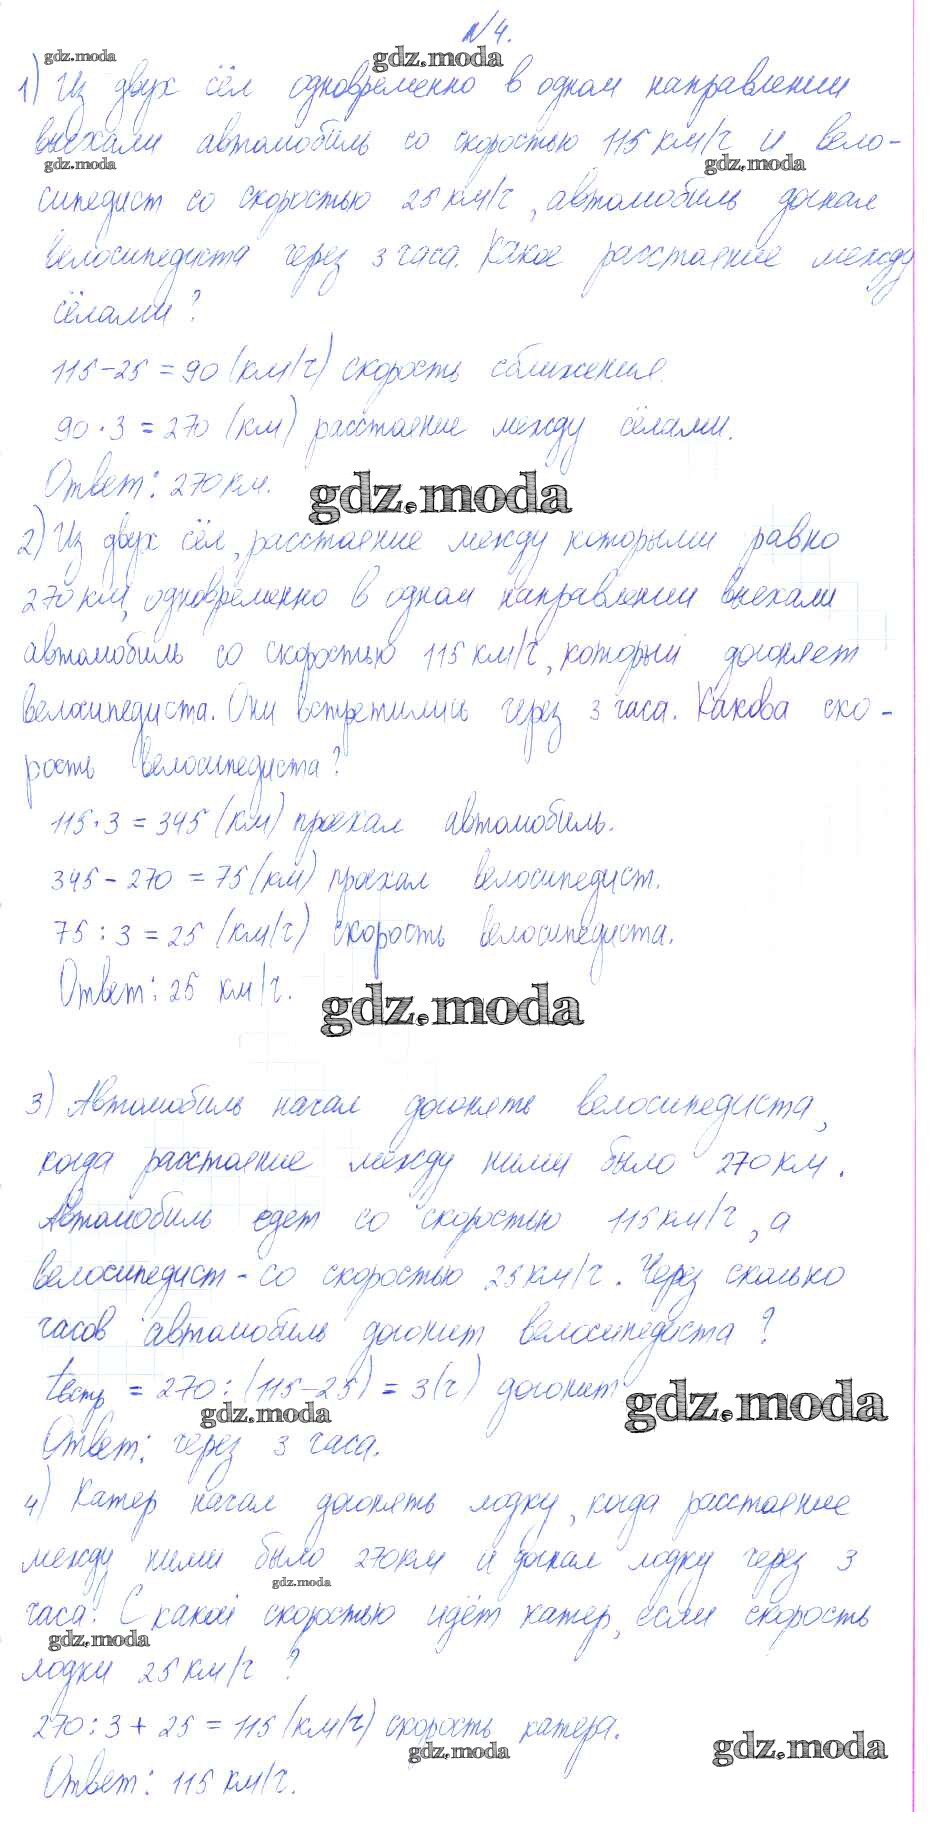 №4.
gdz.moda gdz.moda
1) Из двух сёл одновременно в одном направлении
выехали автомобиль со скоростью 115 км/ч и вело-
gdz.moda gdz.moda
сипедист со скоростью 25 км/ч, автомобиль догнал
велосипедиста через 3 часа. Какое расстояние между
сёлами?
115-25=90 (км/ч) скорость сближения.
90·3=270 (км) расстояние между сёлами.
Ответ: 270 км.
gdz.moda
2) Из двух сёл, расстояние между которыми равно
270 км, одновременно в одном направлении выехали
автомобиль со скоростью 115 км/ч, который догоняет
велосипедиста. Они встретились через 3 часа. Какова ско-
рость велосипедиста?
115·3=345 (км) проехал автомобиль.
345-270=75 (км) проехал велосипедист.
75:3=25 (км/ч) скорость велосипедиста.
Ответ: 25 км/ч.
gdz.moda
3) Автомобиль начал догонять велосипедиста,
когда расстояние между ними было 270 км.
Автомобиль едет со скоростью 115 км/ч, а
велосипедист - со скоростью 25 км/ч. Через сколько
часов автомобиль догонит велосипедиста?
tвстр = 270:(115-25)=3(ч) догонит
gdz.moda gdz.moda
Ответ: через 3 часа.
4) Катер начал догонять лодку, когда расстояние
между ними было 270 км и догнал лодку через 3
gdz.moda
часа. С какой скоростью идёт катер, если скорость
gdz.moda
лодки 25 км/ч?
270:3+25=115 (км/ч) скорость катера.
gdz.moda gdz.moda
Ответ: 115 км/ч.